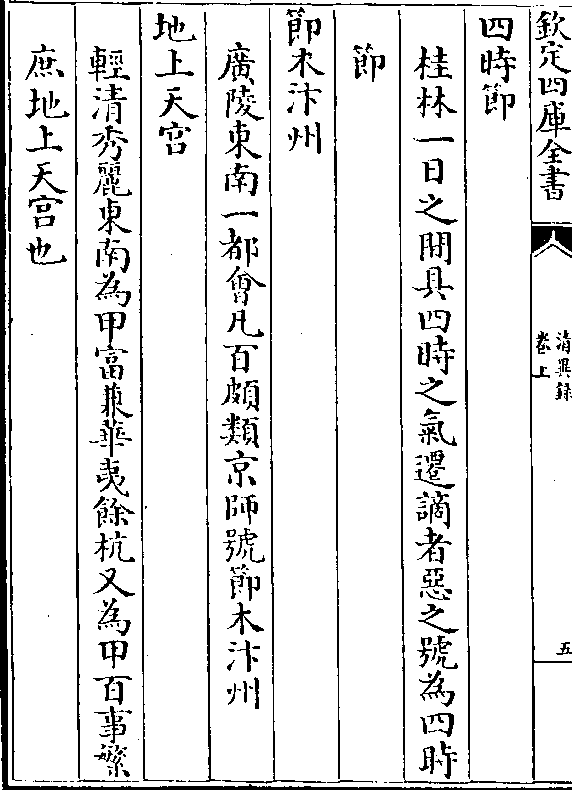 欽定四庫全書
清異錄
卷上
五
四時節
桂林一日之間具四時之氣遷謫者惡之號為四時
節
節木汴州
廣陵東南一都會凡百頗類京師號節木汴州
地上天宫
輕清秀麗東南為甲富兼華夷餘杭又為甲百事繁
庶地上天宫也